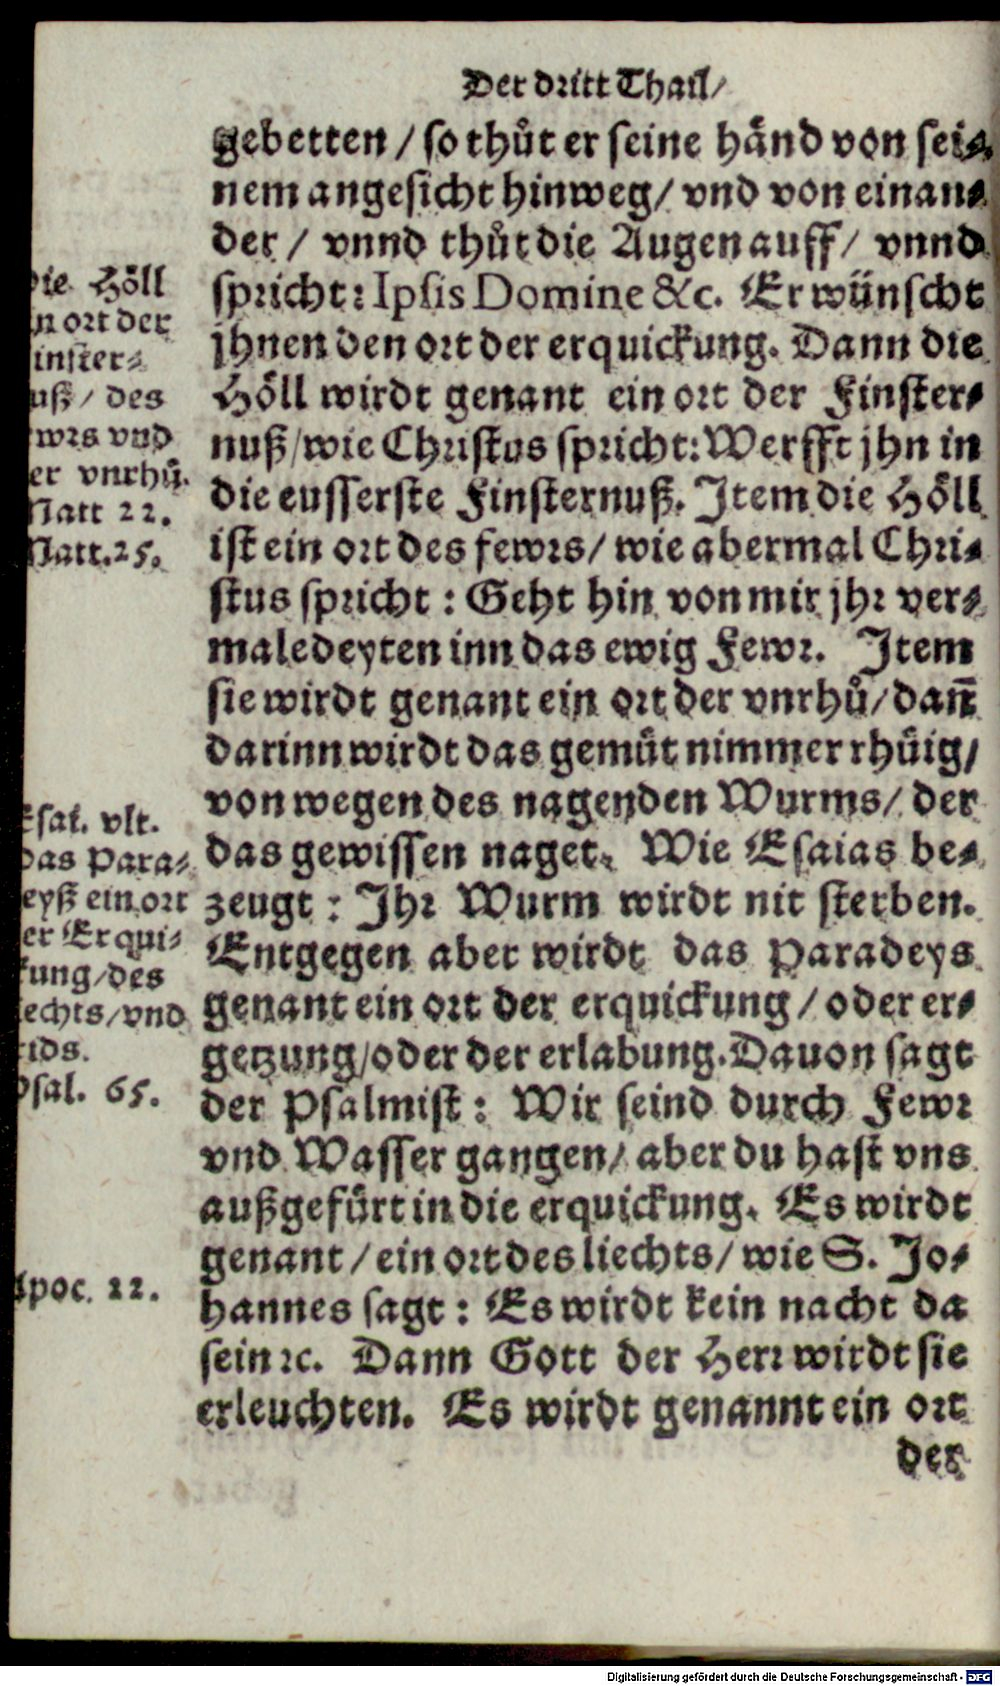 Der dritt Thail/
gebetten / so thuͦt er seine haͤnd von sei⸗
nem angesicht hinweg/ vnd von einan⸗
der / vnnd thuͦt die Augen auff/ vnnd
spricht: Ipsis Domine &c. Er wuͤnscht
jhnen den ort der erquickung. Dann die
Hoͤll wirdt genant ein ort der Finster⸗
nuß/wie Christus spricht: Werfft jhn in
die eusserste Finsternuß. Item die Hoͤll
ist ein ort des fewrs/ wie abermal Chri⸗
stus spricht : Geht hin von mir jhr ver⸗
maledeyten inn das ewig Fewr. Item
sie wirdt genant ein ort der vnrhuͦ/ dañ
darinn wirdt das gemuͤt nimmer rhuͤig/
von wegen des nagenden Wurms/ der
das gewissen naget. Wie Esaias be⸗
zeugt : Jhr Wurm wirdt nit sterben.
Entgegen aber wirdt das Paradeys
genant ein ort der erquickung / oder er⸗
getzung/oder der erlabung. Dauon sagt
der Psalmist : Wir seind durch Fewr
vnd Wasser gangen/ aber du hast vns
außgefuͤrt in die erquickung. Es wirdt
genant / ein ort des liechts/ wie S. Jo⸗
hannes sagt : Es wirdt kein nacht da
sein ꝛc. Dann Gott der Herr wirdt sie
erleuchten. Es wirdt genannt ein ort
der
die Hoͤll
n ort der
inster⸗
uß/ des
wrs vnd
er vnrhuͦ.
Matt 22.
Matt.25.
Esai. vlt.
Das Para⸗
eyß ein ort
er Erqui⸗
kung/des
iechts/vnd
rids.
Psal. 65.
Apoc. 22.
Digitalisierung gefördert durch die Deutsche Forschungsgemeinschaft - DFG